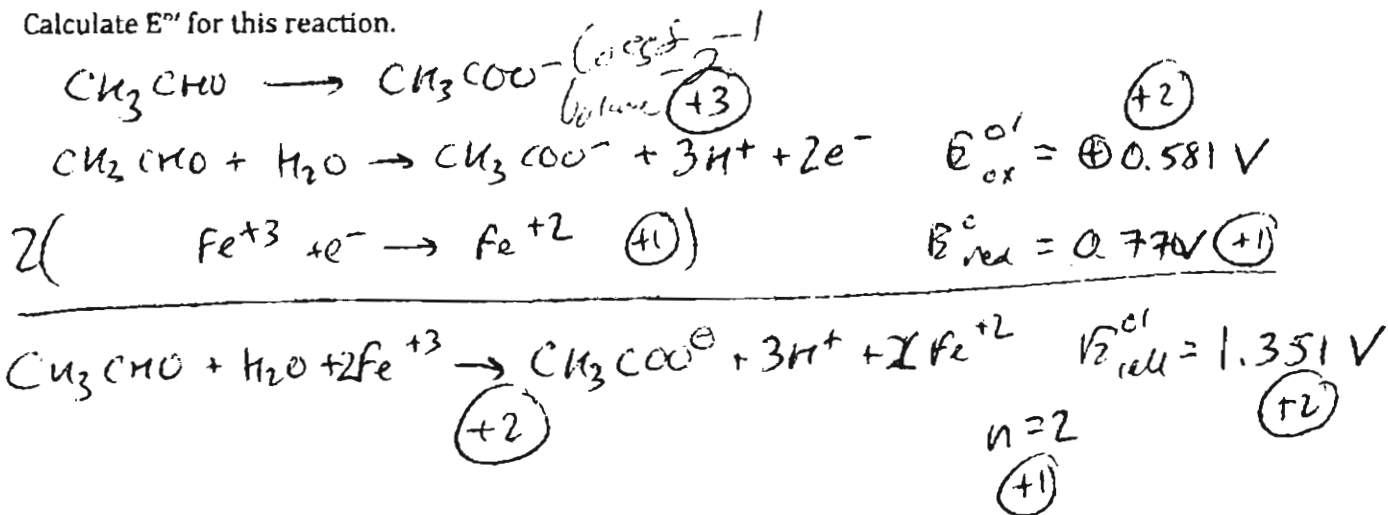 Calculate E°' for this reaction.
CH3CHO → CH3COO- -1
-2
+3 +2
CH3CHO + H2O → CH3COO- + 3H+ + 2e- E°'ox = ⊕0.581 V
2( Fe+3 + e- → Fe+2 +1) E°red = 0.770V +1
CH3CHO + H2O + 2Fe+3 → CH3COO⊖ + 3H+ + 2Fe+2 E°'cell = 1.351 V
+2 +2
n=2
+1